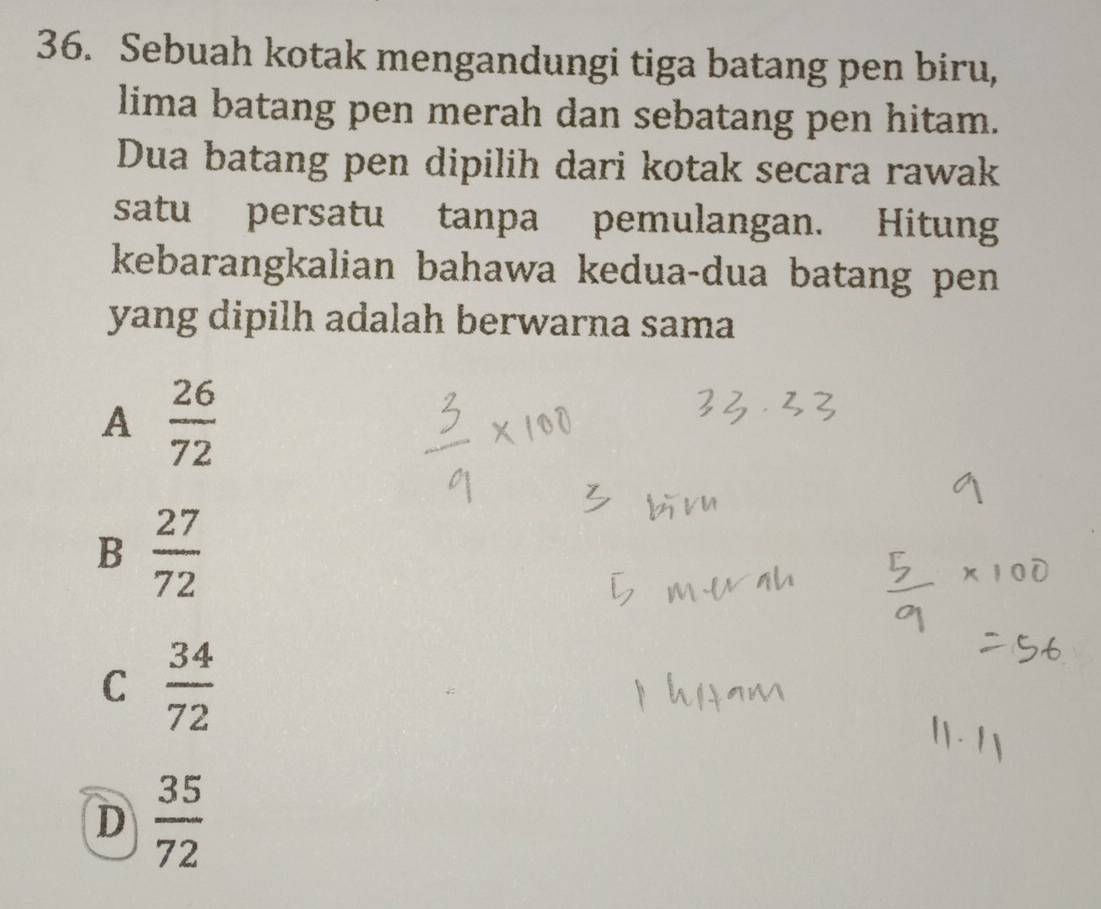 36. Sebuah kotak mengandungi tiga batang pen biru,
lima batang pen merah dan sebatang pen hitam.
Dua batang pen dipilih dari kotak secara rawak
satu persatu tanpa pemulangan. Hitung
kebarangkalian bahawa kedua-dua batang pen
yang dipilh adalah berwarna sama
A 26/72
B 27/72
C 34/72
D 35/72
3/9 × 100
33.33
3 biru
9
5 merah
5/9 × 100
= 56
1 hitam
11.11